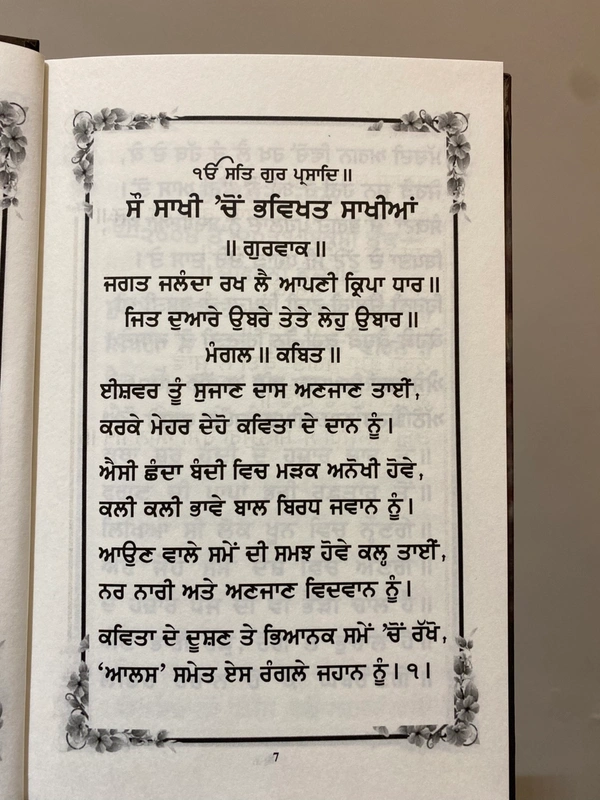 ੴ ਸਤਿ ਗੁਰ ਪ੍ਰਸਾਦਿ॥
ਸੌ ਸਾਖੀ ’ਚੋਂ ਭਵਿਖਤ ਸਾਖੀਆਂ
॥ ਗੁਰਵਾਕ ॥
ਜਗਤ ਜਲੰਦਾ ਰਖ ਲੈ ਆਪਣੀ ਕ੍ਰਿਪਾ ਧਾਰ॥
ਜਿਤ ਦੁਆਰੇ ਉਬਰੇ ਤੇਤੇ ਲੇਹੁ ਉਬਾਰ॥
ਮੰਗਲ॥ ਕਬਿਤ॥
ਈਸ਼ਵਰ ਤੂੰ ਸੁਜਾਣ ਦਾਸ ਅਣਜਾਣ ਤਾਈਂ,
ਕਰਕੇ ਮੇਹਰ ਦੇਹੋ ਕਵਿਤਾ ਦੇ ਦਾਨ ਨੂੰ।
ਐਸੀ ਛੰਦਾ ਬੰਦੀ ਵਿਚ ਮੜਕ ਅਨੋਖੀ ਹੋਵੇ,
ਕਲੀ ਕਲੀ ਭਾਵੇ ਬਾਲ ਬਿਰਧ ਜਵਾਨ ਨੂੰ।
ਆਉਣ ਵਾਲੇ ਸਮੇਂ ਦੀ ਸਮਝ ਹੋਵੇ ਕਲ੍ਹ ਤਾਈਂ,
ਨਰ ਨਾਰੀ ਅਤੇ ਅਣਜਾਣ ਵਿਦਵਾਨ ਨੂੰ।
ਕਵਿਤਾ ਦੇ ਦੂਸ਼ਣ ਤੇ ਭਿਆਨਕ ਸਮੇਂ ’ਚੋਂ ਰੱਖੋ,
‘ਆਲਸ’ ਸਮੇਤ ਏਸ ਰੰਗਲੇ ਜਹਾਨ ਨੂੰ। ੧।
7